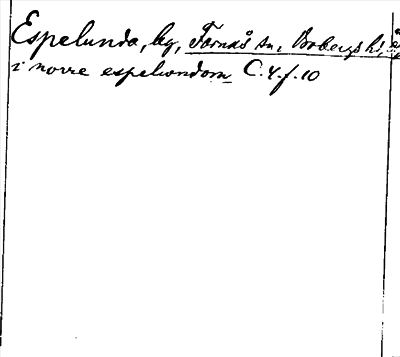 Espelunda, by, Fornås sn, Bobergs hd,
i norre espelwndom C. 4. f. 10